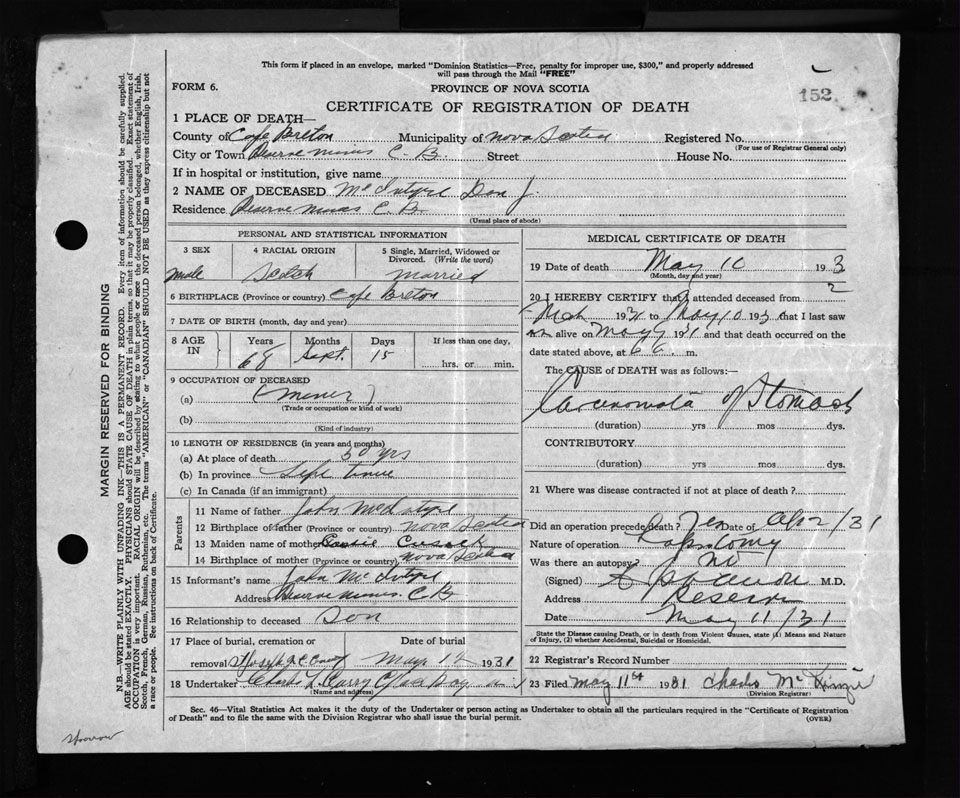 This form if placed in an envelope, marked "Dominion Statistics—Free, penalty for improper use, $300," and properly addressed
will pass through the Mail "FREE"
FORM 6.
PROVINCE OF NOVA SCOTIA
152
CERTIFICATE OF REGISTRATION OF DEATH
1 PLACE OF DEATH—
County of Cape Breton Municipality of Nova Scotia Registered No.
(For use of Registrar General only)
City or Town Reserve Mines C.B. Street House No.
If in hospital or institution, give name
2 NAME OF DECEASED McIntyre Dan J.
Residence Reserve Mines C.B.
(Usual place of abode)
PERSONAL AND STATISTICAL INFORMATION
3 SEX 4 RACIAL ORIGIN 5 Single, Married, Widowed or Divorced. (Write the word)
male Scotch married
6 BIRTHPLACE (Province or country) Cape Breton
7 DATE OF BIRTH (month, day and year)
8 AGE IN Years Months Days If less than one day,
68 Sept. 15 hrs. or min.
9 OCCUPATION OF DECEASED
(a) (miner)
(Trade or occupation or kind of work)
(b)
(Kind of industry)
10 LENGTH OF RESIDENCE (in years and months)
(a) At place of death 50 yrs
(b) In province Life time
(c) In Canada (if an immigrant)
Parents
11 Name of father John McIntyre
12 Birthplace of father (Province or country) Nova Scotia
13 Maiden name of mother Cusack
14 Birthplace of mother (Province or country) Nova Scotia
15 Informant's name John McIntyre
Address Reserve Mines. C.B
16 Relationship to deceased Son
17 Place of burial, cremation or Date of burial
removal May 12 1931
18 Undertaker Glace Bay
(Name and address)
MEDICAL CERTIFICATE OF DEATH
19 Date of death May 10 193
(Month, day and year)
20 I HEREBY CERTIFY that I attended deceased from
193 to May 10 193 that I last saw
alive on May 9 1931 and that death occurred on
date stated above, at 6 a. m.
The CAUSE of DEATH was as follows:—
Carcinomata of Stomach
(duration) yrs mos dys.
CONTRIBUTORY
(duration) yrs mos dys.
21 Where was disease contracted if not at place of death?
Did an operation precede death? Yes Date of Ap 2/31
Nature of operation
Was there an autopsy? No
(Signed) M.D.
Address Reserve
Date May 11/31
State the Disease causing Death, or in death from Violent Causes, state (1) Means and Nature of Injury, (2) whether Accidental, Suicidal or Homicidal.
22 Registrar's Record Number
23 Filed May 11st 1931 Charles McKinzie
(Division Registrar)
Sec. 46—Vital Statistics Act makes it the duty of the Undertaker or person acting as Undertaker to obtain all the particulars required in the "Certificate of Registration
of Death" and to file the same with the Division Registrar who shall issue the burial permit. (OVER)
MARGIN RESERVED FOR BINDING
N.B.—WRITE PLAINLY WITH UNFADING INK—THIS IS A PERMANENT RECORD. Every item of information should be carefully supplied.
AGE should be stated EXACTLY. PHYSICIANS should STATE CAUSE OF DEATH in plain terms, so that it may be properly classified. Exact statement of
OCCUPATION is very important. RACIAL ORIGIN will be described by stating to what people or race the deceased person belonged, whether English, Irish,
Scotch, French, German, Russian, Ruthenian, etc. The terms "AMERICAN" or "CANADIAN" SHOULD NOT BE USED as they express citizenship but not
a race or people. See instructions on back of Certificate.